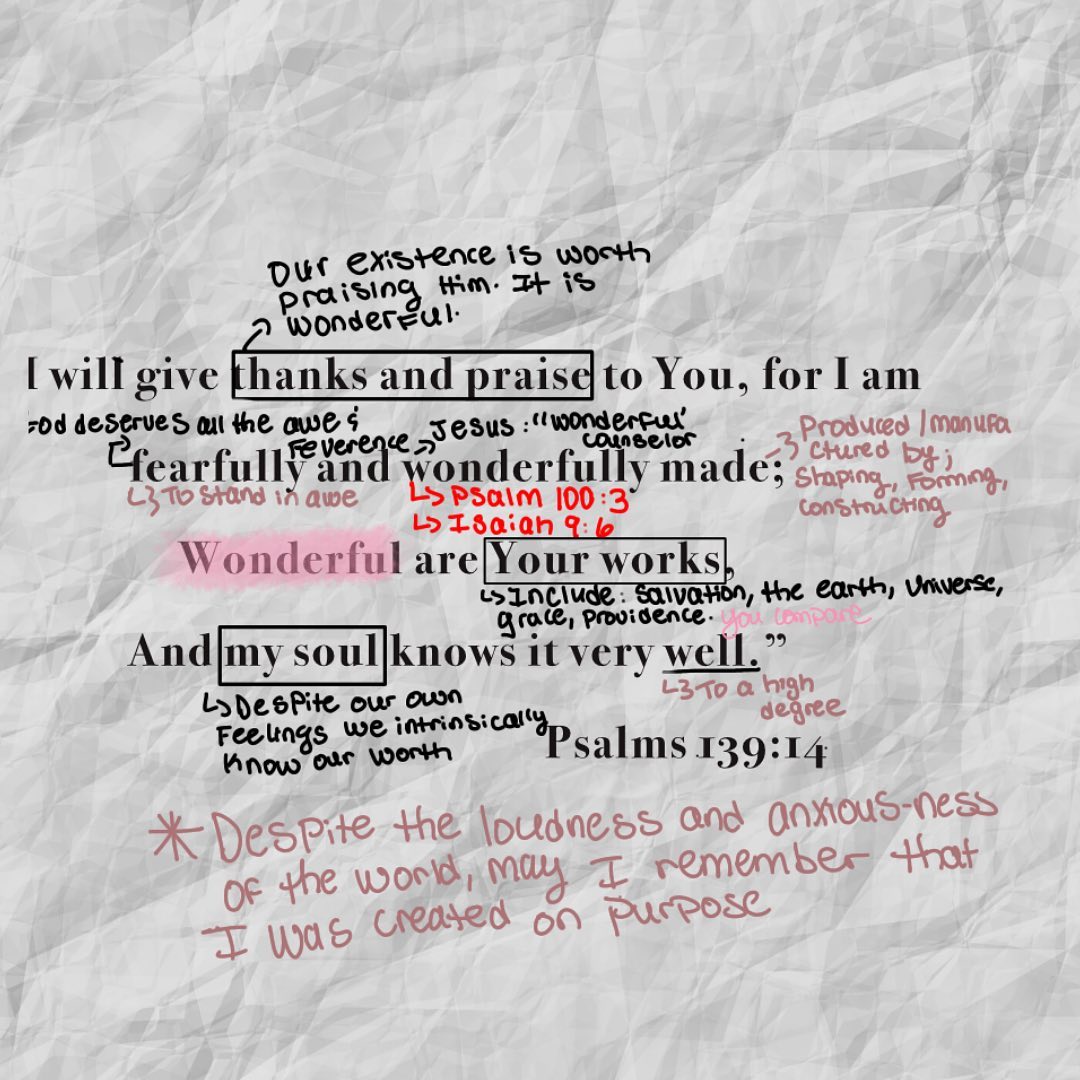 Our existence is worth
praising Him. It is
wonderful.
I will give thanks and praise to You, for I am
God deserves all the awe &
reverence
Jesus: "wonderful"
counselor
fearfully and wonderfully made;
Produced/manufa
ctured by;
Shaping, Forming,
constructing
To stand in awe
Psalm 100:3
Isaiah 9:6
Wonderful are Your works,
Include: Salvation, the earth, Universe,
grace, providence. you compare
And my soul knows it very well.”
To a high
degree
Despite our own
Feelings we intrinsically
Know our worth
Psalms 139:14
* Despite the loudness and anxious-ness
of the world, may I remember that
I was created on purpose